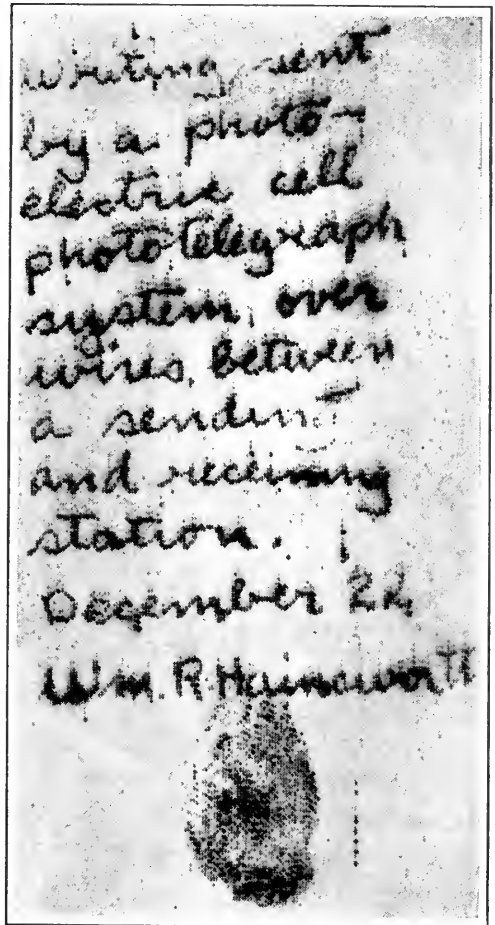 writing sent
by a photo-
electric cell
photo telegraph
system, over
wires, between
a sending
and receiving
station.
December 22
Wm. R. Hainsworth